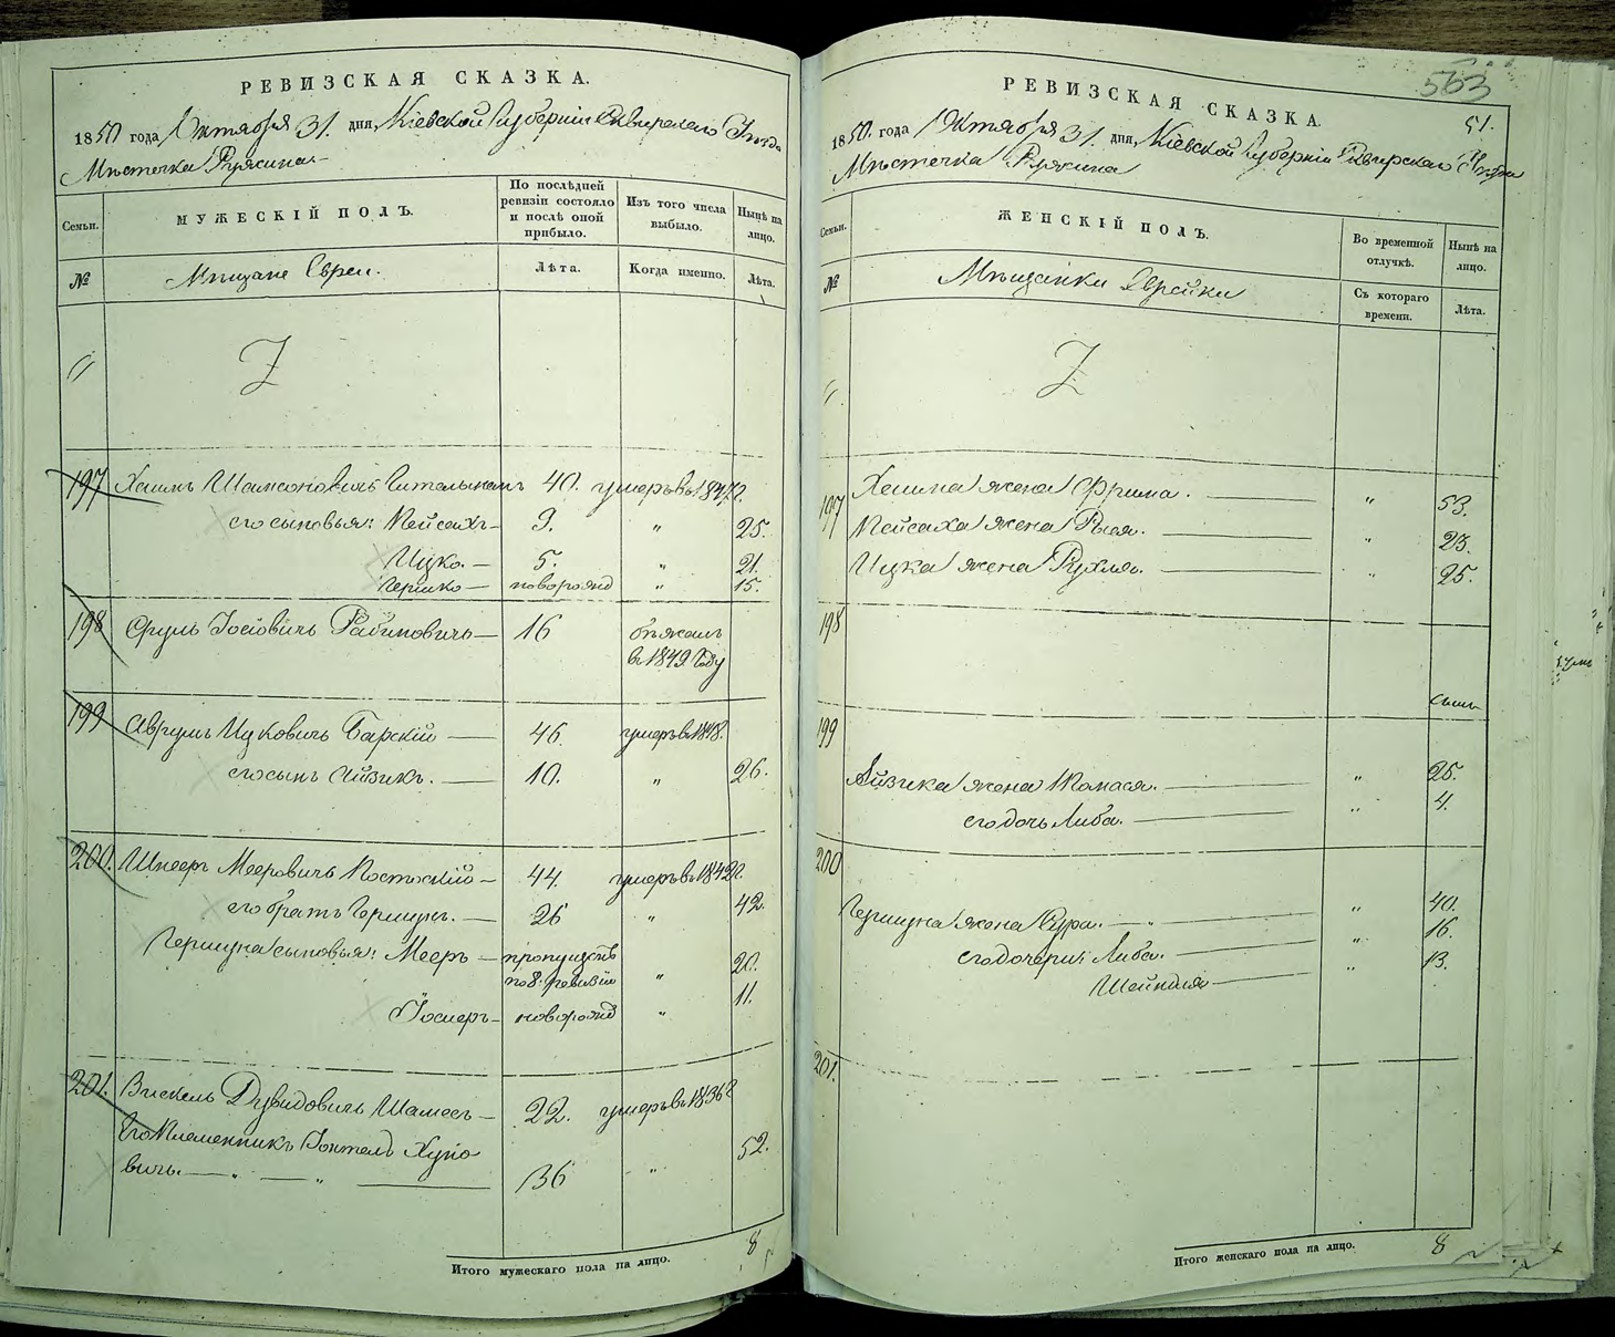 РЕВИЗСКАЯ СКАЗКА.
1850 года Октября 31. дня, Кіевской Губерніи Сквирскаго Уѣзда
Мѣстечка Ружина
Семьи.
МУЖЕСКІЙ ПОЛЪ.
По послѣдней ревизіи состояло и послѣ оной прибыло.
Изъ того числа выбыло.
Нынѣ на лицо.
№
Мѣщане Евреи.
Лѣта.
Когда именно.
Лѣта.
197 Хаимъ Шамсоновичъ 40. умеръ въ 1847 г.
его сыновья: Пейсахъ 9. " 25.
Ицко. 5. " 21.
Гершко новорожд " 15.
198 Сруль Іосіовичъ Рабиновичъ 16 бѣжалъ
въ 1849 Году
199 Аврумъ Ицковичъ Барскій 46. умеръ въ 1848.
его сынъ Айзикъ. 10. " 26.
200. Шнееръ Мееровичъ 44. умеръ въ 1842 г.
его братъ Гершунъ. 26 " 42.
Гершуна сыновья: Мееръ пропущенъ 20.
по 8. ревизіи "
Іосиеръ новорожд " 11.
201. Дувидовичъ Шамесъ 22. умеръ въ 1836 г
Его Племенникъ 52.
вичъ. 36 "
Итого мужескаго пола на лицо. 8
563
51.
РЕВИЗСКАЯ СКАЗКА.
1850. года Октября 31 дня, Кіевской Губерніи Сквирскаго Уѣзда
Мѣстечка Ружина
Семьи.
ЖЕНСКІЙ ПОЛЪ.
Во временной отлучкѣ.
Нынѣ на лицо.
№
Мѣщанки Еврейки
Съ котораго времени.
Лѣта.
197 Хаима жена Фрима. " 53.
Пейсаха жена Рыся. " 23.
Ицка жена Рухля. " 25.
198
199
Айзика жена " 25.
его дочь Либа. " 4.
200
Гершуна жена Сура. " 40.
его дочери: Либа. " 16.
Шейндля " 13.
201.
Итого женскаго пола на лицо. 8